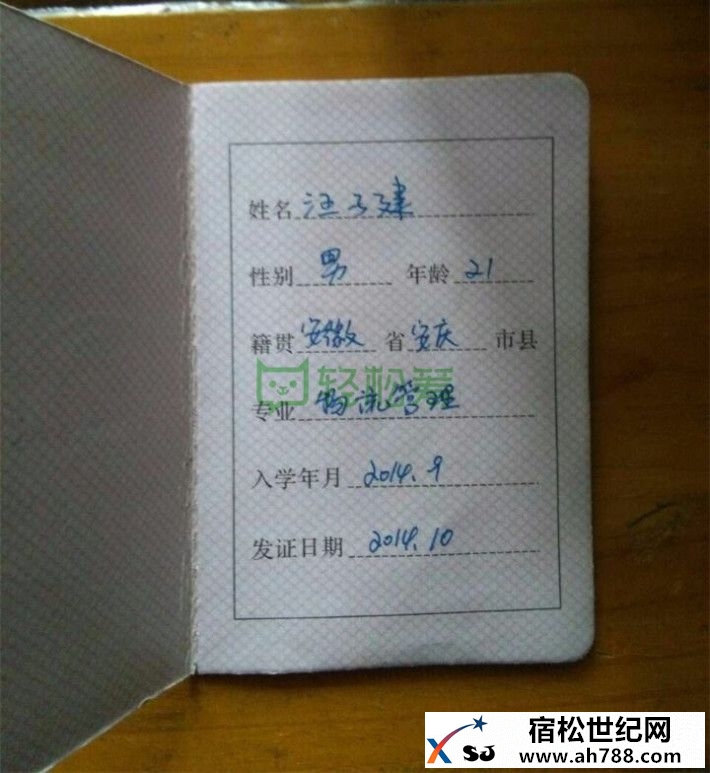 姓名 汪子建
性别 男 年龄 21
籍贯 安徽 省 安庆 市县
轻松爱
专业 物流管理
入学年月 2014.9
发证日期 2014.10
XSJ 宿松世纪网
www.ah788.com